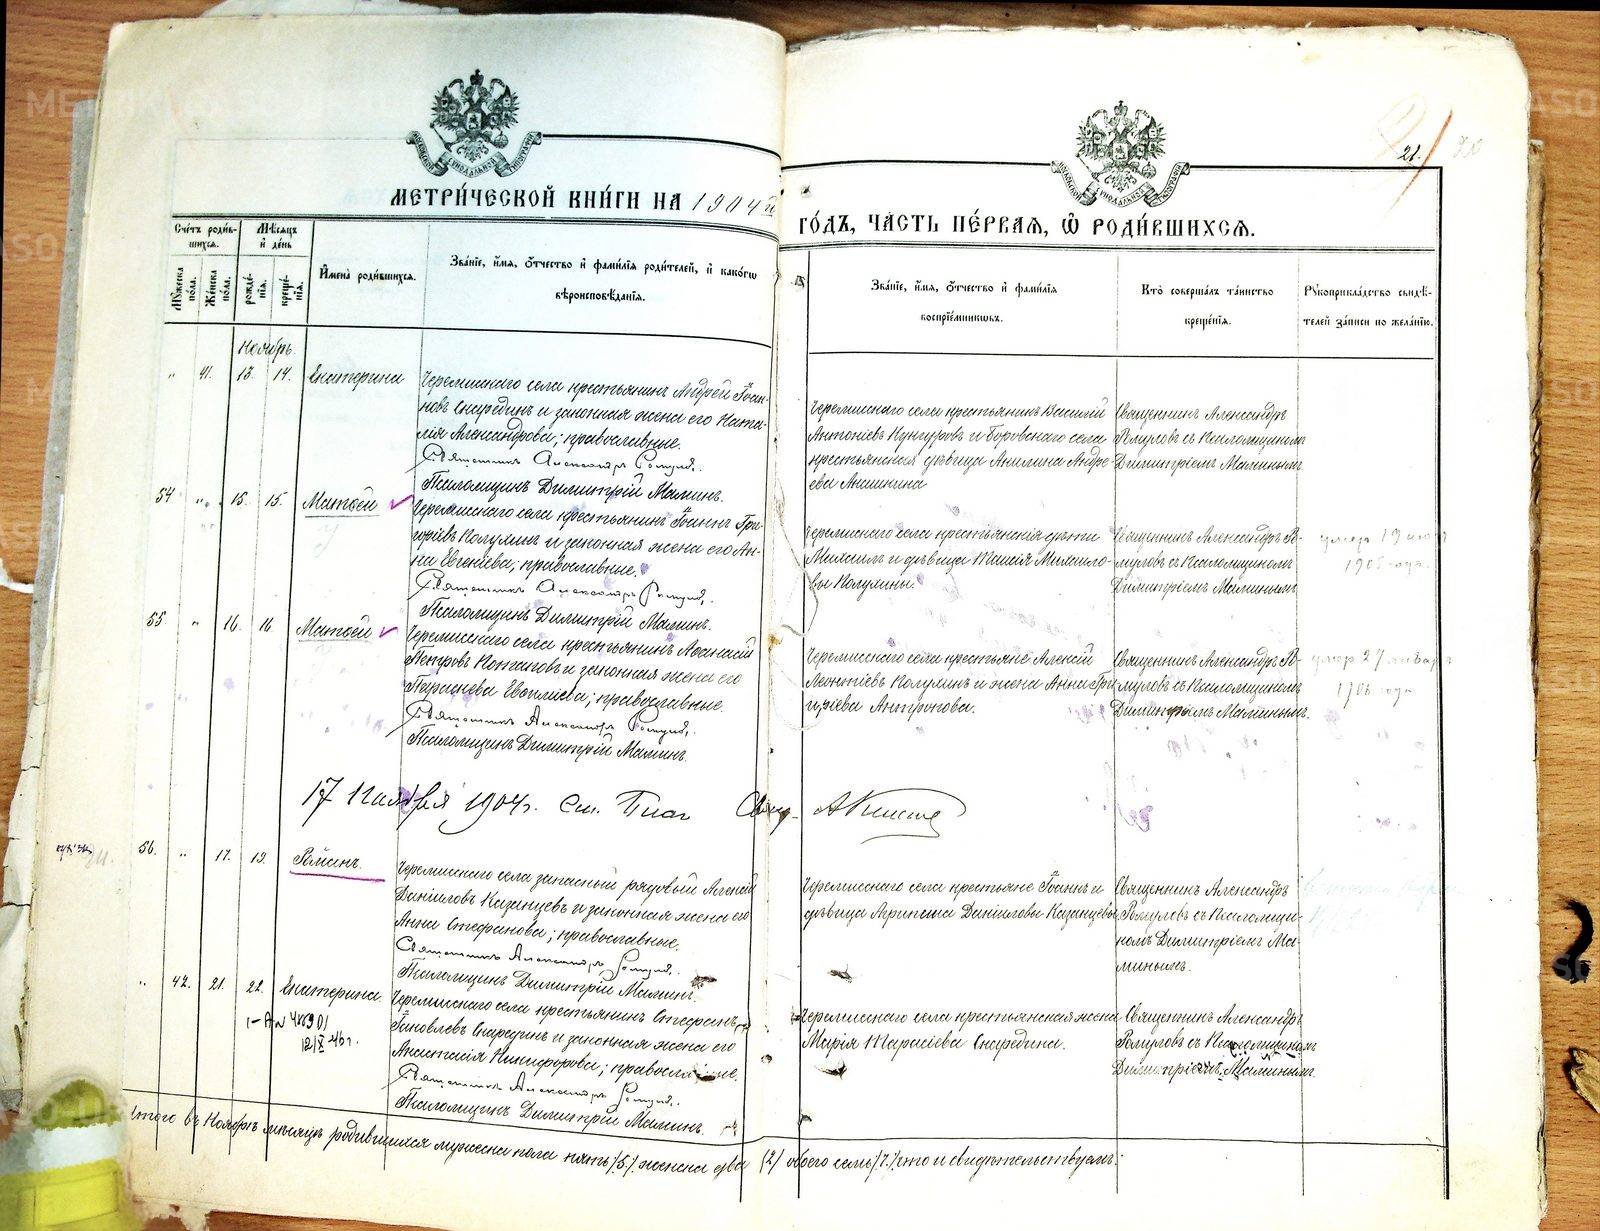 МЕТРИ́ЧЕСКОЙ КНИ́ГИ НА 1904 й
ГО́ДЪ, ЧА́СТЬ ПЕ́РВАЯ, Ѽ РОДИ́ВШИХСЯ.
21.
Сче́тъ роди́в-
шихся.
Мꙋ́жеска по́ла.
Же́нска по́ла.
Мѣ́сяцъ
и҆ де́нь
рожде́-
нїя.
креще́-
нїя.
И҆мена̀ роди́вшихся.
Зва́нїе, и҆́мя, ѻ҆́тчество и҆ фами́лїя роди́телей, и҆ како́гѡ
вѣроисповѣ́данїя.
Зва́нїе, и҆́мя, ѻ҆́тчество и҆ фами́лїя
воспрїе́мниковъ.
Кто̀ соверша́лъ та́инство
креще́нїя.
Рꙋкоприкла́дство свидѣ́-
телей за́писи по жела́нїю.
Ноябрь.
" 41. 13. 14. Екатерина
Черемисскаго села крестьянинъ Андрей Іоан-
новъ Снарединъ и законная жена его Ната-
лія Александрова; православные.
Священникъ Александръ Ромуловъ.
Псаломщикъ Димитрій Маминъ.
Черемисскаго села крестьянинъ Василій
Антоніевъ Кунгуровъ и Боровскаго села
крестьянская дѣвица Акилина Андре-
ева Аникина
Священникъ Александръ
Ромуловъ съ Псаломщикомъ
Димитріемъ Маминымъ
54 " 15. 15. Матѳей
Черемисскаго села крестьянинъ Іоаннъ Гри-
горіевъ Калухинъ и законная жена его Ан-
на Евгеніева; православные.
Священникъ Александръ Ромуловъ.
Псаломщикъ Димитрій Маминъ.
Черемисскаго села крестьянскія дѣти
Михаилъ и дѣвица Таисія Михаило-
вы Калухины.
Священникъ Александръ Ро-
муловъ съ Псаломщикомъ
Димитріемъ Маминымъ
умер 19
1905 года.
55. " 16. 16. Матѳей
Черемисскаго села крестьянинъ Аѳанасій
Петровъ Потаповъ и законная жена его
Параскева Евпліева; православные.
Священникъ Александръ Ромуловъ.
Псаломщикъ Димитрій Маминъ.
Черемисскаго села крестьяне Алексій
Леонтіевъ Калухинъ и жена Анна Гри
горіева Антропова.
Священникъ Александръ Ро-
муловъ съ Псаломщикомъ
Димитріемъ Маминымъ.
умер 27 января
1906 года
17 Ноября 1904 г. См. Благ Свящ.
56. " 17. 19. Романъ.
Черемисскаго села запасный рядовый Алексій
Даниловъ Казанцевъ и законная жена его
Анна Стефанова; православные.
Священникъ Александръ Ромуловъ.
Псаломщикъ Димитрій Маминъ.
Черемисскаго села крестьяне Іоаннъ и
дѣвица Агрипина Даниловы Казанцевы
Священникъ Александръ
Ромуловъ съ Псаломщи-
комъ Димитріемъ Ма-
минымъ.
" 42. 21. 22. Екатерина.
12/X 46 г.
Черемисскаго села крестьянинъ Стефанъ
Іаковлевъ Снарединъ и законная жена его
Анастасія Никифорова; православные.
Священникъ Александръ Ромуловъ.
Псаломщикъ Димитрій Маминъ.
Черемисскаго села крестьянская жена
Марія Тарасіева Снаредина.
Священникъ Александръ
Ромуловъ съ Псаломщикомъ
Димитріемъ Маминымъ.
Итого въ Ноябрѣ мѣсяцѣ родившихся мужеска пола пять /5/ женска два /2/ обоего семь /7/, что и свидѣтельствуемъ: